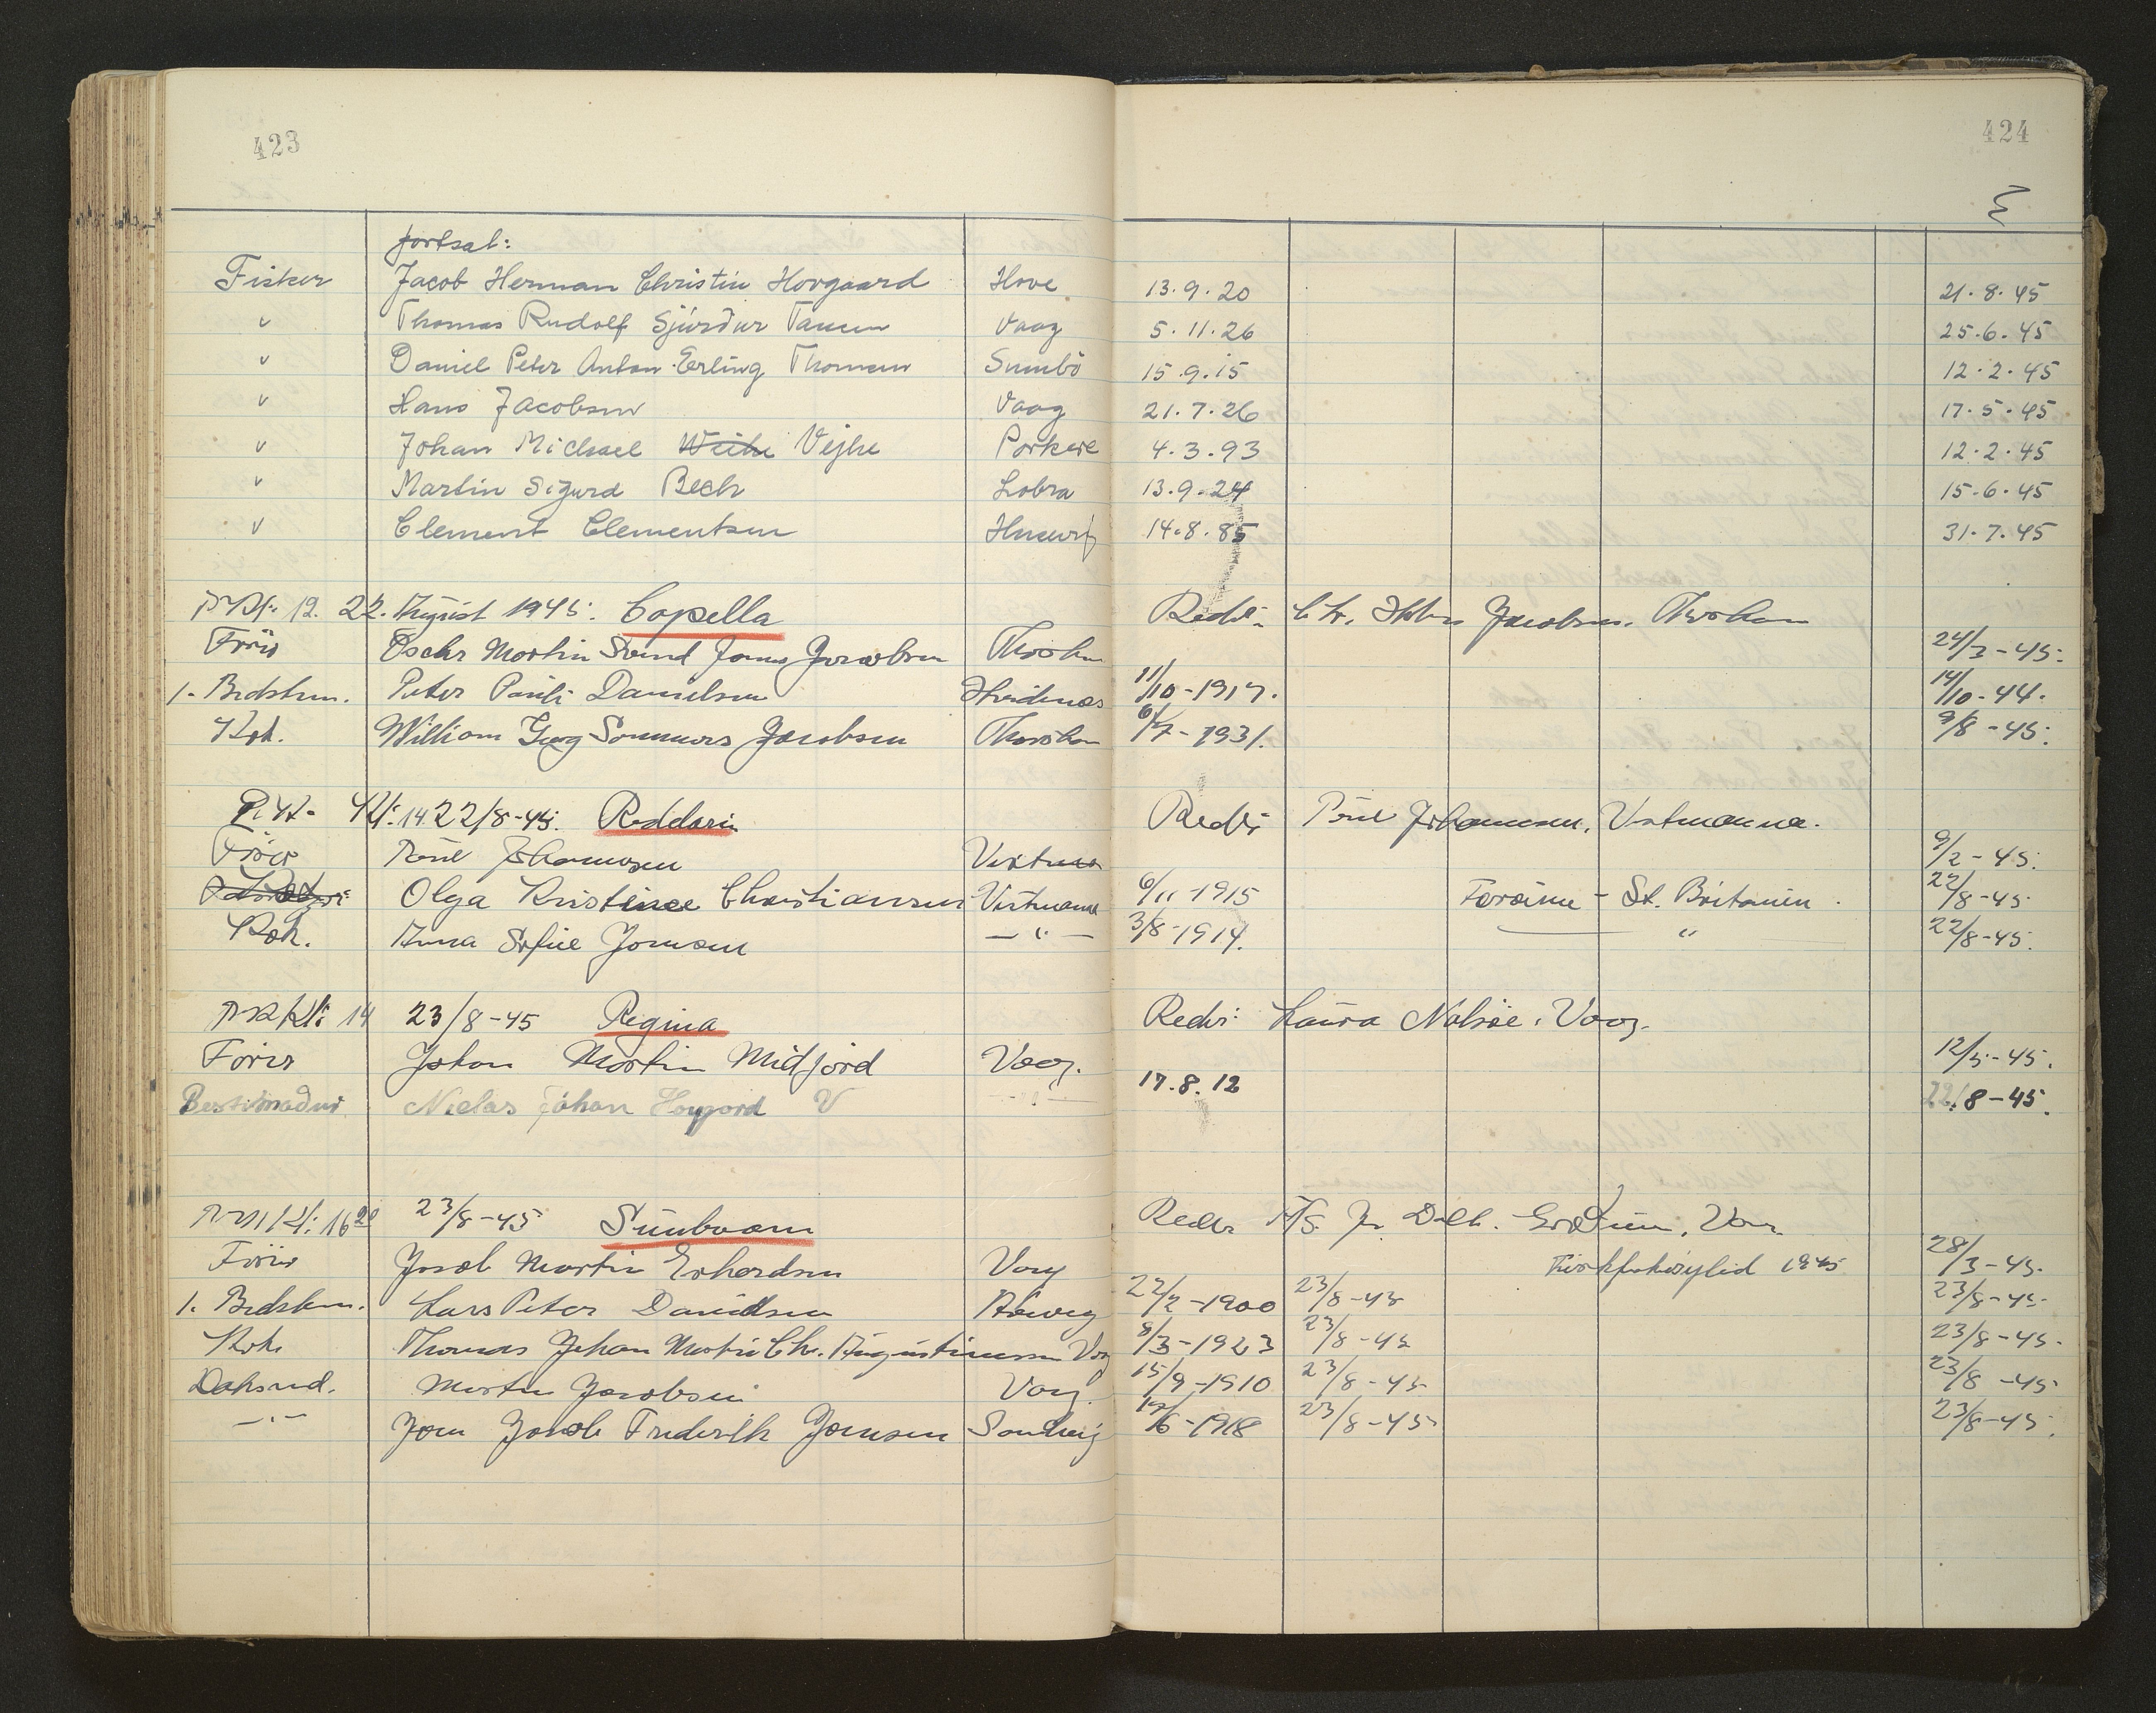 423
424
fortsat:
Fisker Jacob Herman Christin Hovgaard Hove 13.9.20 21.8.45
v Thomas Rudolf Sjúrdur Tausen Vaag 5.11.26 25.6.45
v Daniel Peter Anton Erling Thomsen Sumbö 15.9.15 12.2.45
v Hans Jacobsen Vaag 21.7.26 17.5.45
v Johan Michael Weihe Vejhe Porkere 4.3.93 12.2.45
v Martin Sigurd Bech Lobra 13.9.24 15.6.45
v Clement Clementsen 14.8.85 31.7.45
12. 22. August 1945. Capella Rederi Jacobsen, Thorshavn
Förer Oscar Martin Svend Jacobsen Thorshvn 24/3-45.
1. Bedstem. Peter Pauli Danielsen 11/10-1917. 14/10-44.
Kok. William Sommers Jacobsen Thorshvn 6/7-1931. 9/8-45.
Kl. 14 22/8-45. Reddarin Rederi Poul Johannesen, Vestmanna.
Förer Poul Johannesen Vestmna 9/2-45.
Olga Kristince Christiansen Vestmanna 6/11-1915 Faröerne - St. Britanien. 22/8-45.
Kok. Anna Sofie Joensen —"— 3/8-1914. " 22/8-45.
Kl: 14 23/8-45 Regina Rederi: Laura Nolsöe, Vaag.
Förer Johan Martin Midfjord Vaag. 12/5-45.
Bestimadur Niclas Johan V 17.8.12 22/8-45.
Kl: 16 20 23/8-45 Sunbeam Rederi A/S. J. Dahl.
Förer Jacob Martin Erhardsen Vaag 1945 28/3-45.
1. Bedstem. Lars Peter Danielsen 22/2-1900 23/8-45 23/8-45.
Kok. Thomas Johan Martin Chr. Augustinussen Vaag 8/3-1923 23/8-45 23/8-45.
Martin Jacobsen Vaag 15/9-1910 23/8-45 23/8-45
—"— Joen Jacob Frederik Joensen Sandvig 6-1918 23/8-45 23/8-45.